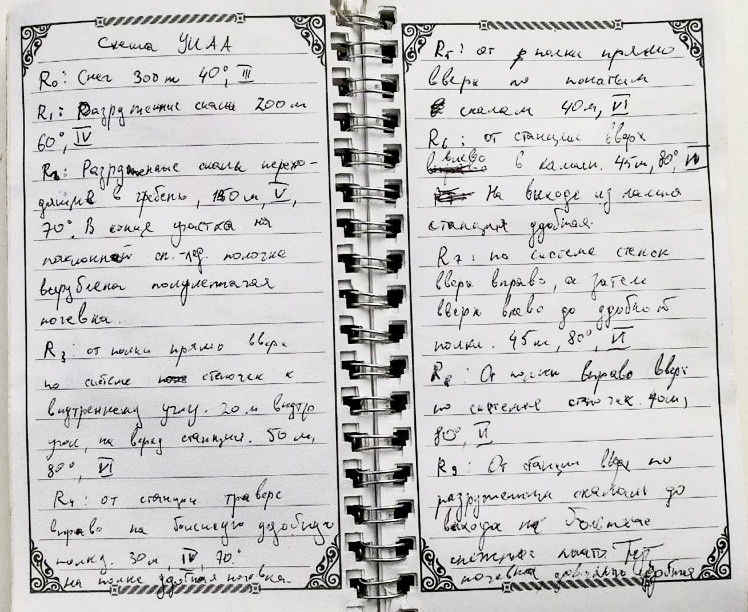 Схема УИАА
R₀: Снег 300 м 40°, III
R₁: Разрушенные скалы 200 м
60°, IV
R₂: Разрушенные скалы перехо-
дящие в гребень, 150 м, V,
70°. В конце участка на
наклонной сн.-лед. полочке
вырублена полулежачая
ночевка.
R₃: от полки прямо вверх
по системе стеночек к
внутреннему углу. 20 м внутр
угол, на верху станция. 50 м,
80°, VI
R₄: от станции траверс
вправо на большую удобную
полку. 30 м, IV, 70°
на полке удобная ночевка.
R₅: от полки прямо
вверх по покатым
скалам 40 м, VI
R₆: от станции вверх
влево в камин. 45 м, 80°, VI
На выходе из камина
станция удобная.
R₇: по системе стенок
вверх вправо, а затем
вверх влево до удобной
полки. 45 м, 80°, VI
R₈: От полки вправо вверх
по системе стеночек. 40 м,
80°, VI
R₉: От станции вверх по
разрушенным скалам до
выхода на большие
снежные
ночевка довольно удобная